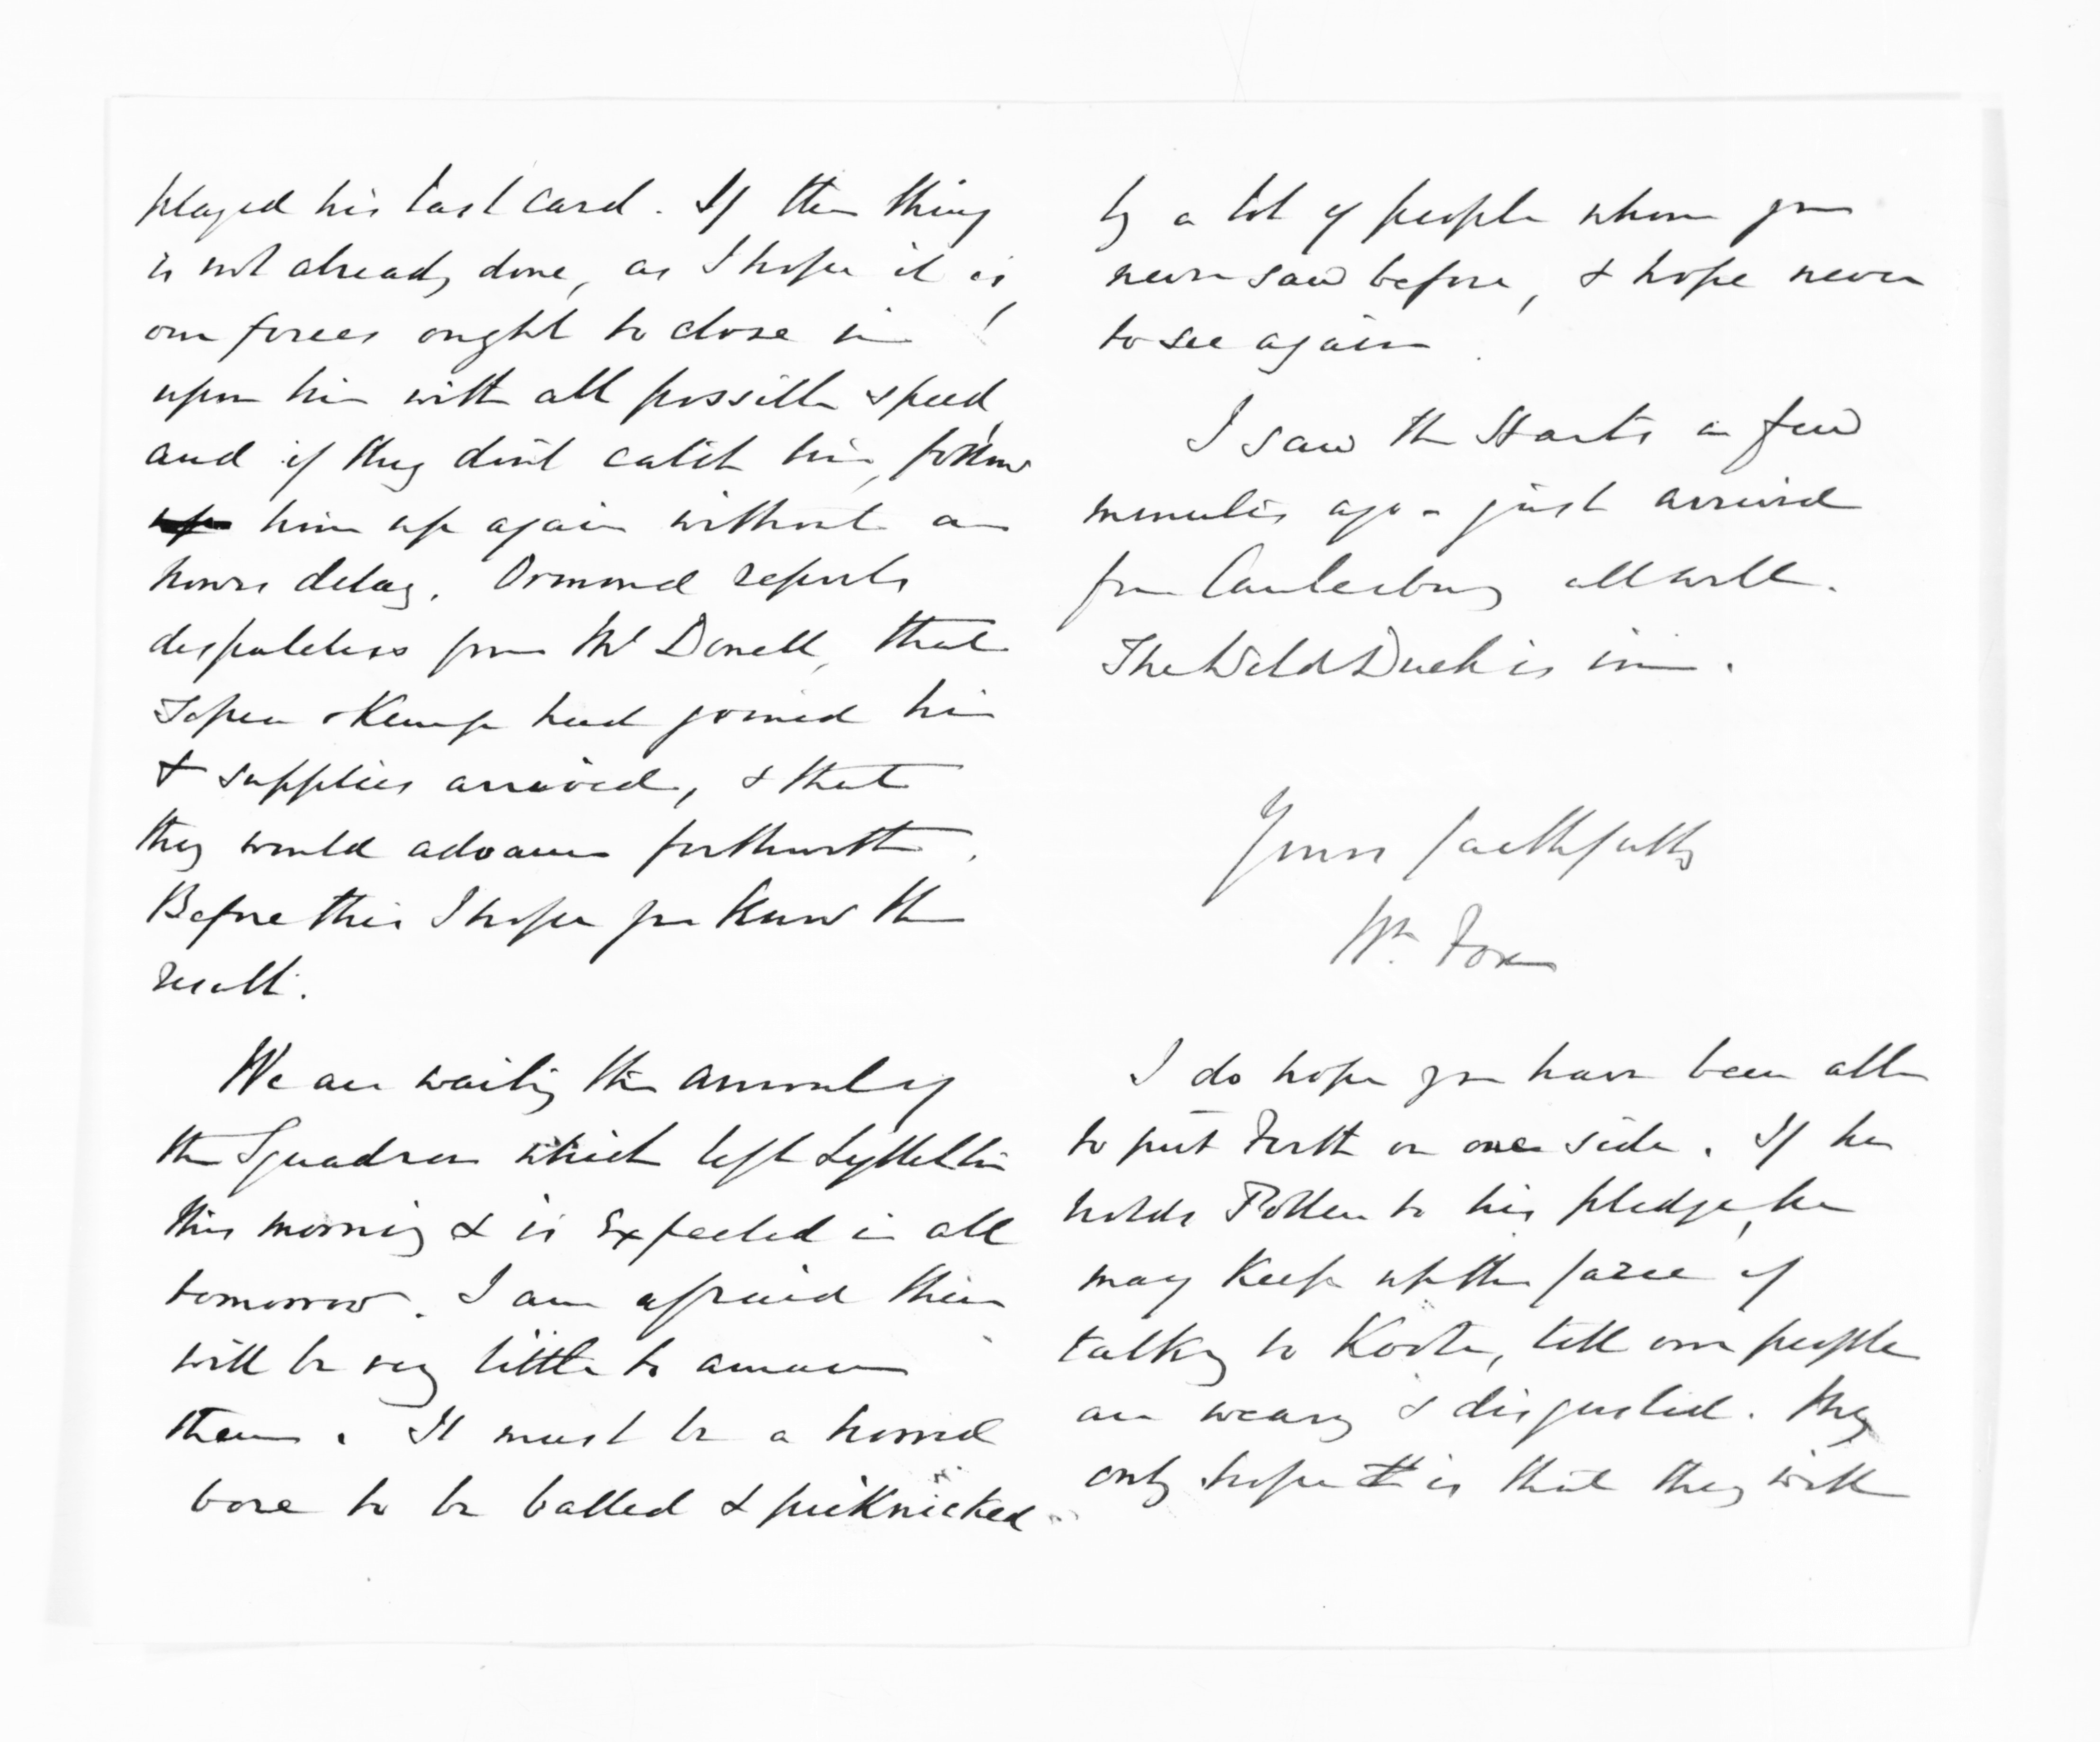 played his last card. If the thing
is not already done, as I hope it is,
our forces ought to close in
upon him with all possible speed,
and if they don't catch him, follow
up him up again without an
hours delay. Ormond reports
despatches from McDonell, that
Topia & Kemp had joined him
& supplies arrived, & that
they would advance forthwith.
Before this I hope you know the
result.
We are waiting the arrival of
the Squadron which left Lyttelton
this morning & is expected in all
tomorrow. I am afraid there
will be very little to amuse
them. It must be a horrid
bore to be balled & picknicked
by a lot of people whom you
never saw before, & hope never
to see again.
I saw the Harts a few
minutes ago - just arrived
from Canterbury all well.
The Wild Duck is in.
Yours faithfully
Wm Fox
I do hope you have been able
to put Firth on one side. If he
holds Pollen to his pledge, he
may keep up the farce of
talking to Kooti, till our people
are weary & disgusted. My
only hope is that they will